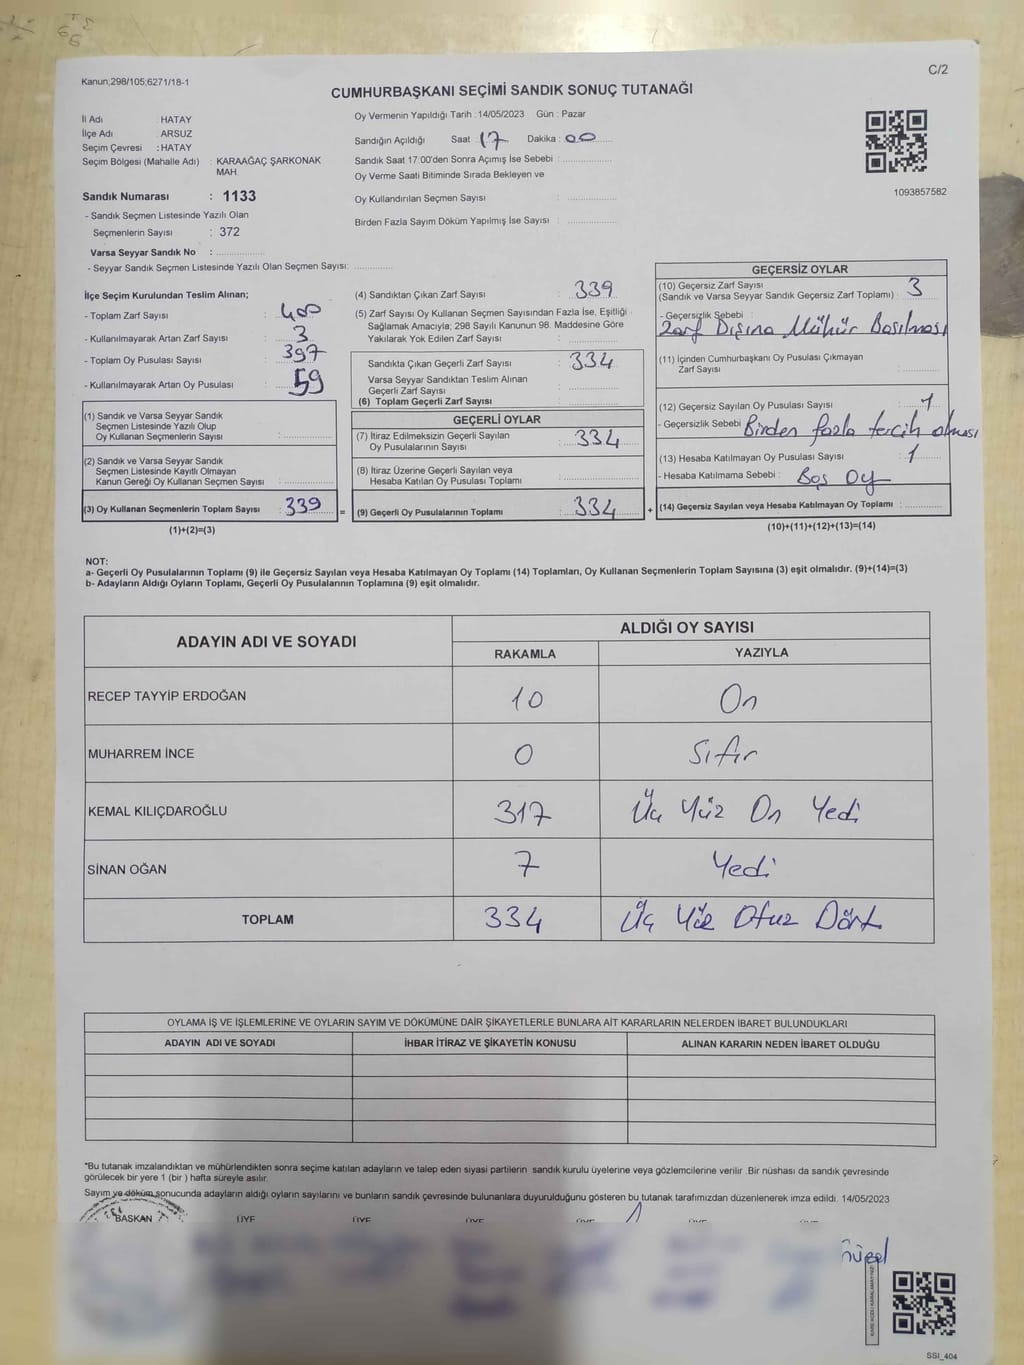 Kanun;298/105;6271/18-1
C/2
CUMHURBAŞKANI SEÇİMİ SANDIK SONUÇ TUTANAĞI
İl Adı : HATAY
İlçe Adı : ARSUZ
Seçim Çevresi : HATAY
Seçim Bölgesi (Mahalle Adı) : KARAAĞAÇ ŞARKONAK
MAH.
Sandık Numarası : 1133
- Sandık Seçmen Listesinde Yazılı Olan
Seçmenlerin Sayısı : 372
Varsa Seyyar Sandık No :
- Seyyar Sandık Seçmen Listesinde Yazılı Olan Seçmen Sayısı:
Oy Vermenin Yapıldığı Tarih : 14/05/2023 Gün : Pazar
Sandığın Açıldığı Saat : 17 Dakika : 00
Sandık Saat 17:00'den Sonra Açımış İse Sebebi :
Oy Verme Saati Bitiminde Sırada Bekleyen ve
Oy Kullandırılan Seçmen Sayısı :
Birden Fazla Sayım Döküm Yapılmış İse Sayısı :
1093857582
İlçe Seçim Kurulundan Teslim Alınan;
- Toplam Zarf Sayısı : 400
- Kullanılmayarak Artan Zarf Sayısı : 3
- Toplam Oy Pusulası Sayısı : 397
- Kullanılmayarak Artan Oy Pusulası : 59
(1) Sandık ve Varsa Seyyar Sandık
Seçmen Listesinde Yazılı Olup
Oy Kullanan Seçmenlerin Sayısı :
(2) Sandık ve Varsa Seyyar Sandık
Seçmen Listesinde Kayıtlı Olmayan
Kanun Gereği Oy Kullanan Seçmen Sayısı :
(3) Oy Kullanan Seçmenlerin Toplam Sayısı : 339 =
(1)+(2)=(3)
(4) Sandıktan Çıkan Zarf Sayısı : 339
(5) Zarf Sayısı Oy Kullanan Seçmen Sayısından Fazla İse, Eşitliği
Sağlamak Amacıyla; 298 Sayılı Kanunun 98. Maddesine Göre
Yakılarak Yok Edilen Zarf Sayısı :
Sandıkta Çıkan Geçerli Zarf Sayısı : 334
Varsa Seyyar Sandıktan Teslim Alınan
Geçerli Zarf Sayısı :
(6) Toplam Geçerli Zarf Sayısı :
GEÇERLİ OYLAR
(7) İtiraz Edilmeksizin Geçerli Sayılan
Oy Pusulalarının Sayısı : 334
(8) İtiraz Üzerine Geçerli Sayılan veya
Hesaba Katılan Oy Pusulası Toplamı :
(9) Geçerli Oy Pusulalarının Toplamı : 334 +
GEÇERSİZ OYLAR
(10) Geçersiz Zarf Sayısı
(Sandık ve Varsa Seyyar Sandık Geçersiz Zarf Toplamı) : 3
- Geçersizlik Sebebi :
Zarf Dışına Mühür Basılması
(11) İçinden Cumhurbaşkanı Oy Pusulası Çıkmayan
Zarf Sayısı :
(12) Geçersiz Sayılan Oy Pusulası Sayısı : 1
- Geçersizlik Sebebi : Birden fazla tercih olması
(13) Hesaba Katılmayan Oy Pusulası Sayısı : 1
- Hesaba Katılmama Sebebi : Boş Oy
(14) Geçersiz Sayılan veya Hesaba Katılmayan Oy Toplamı :
(10)+(11)+(12)+(13)=(14)
NOT:
a- Geçerli Oy Pusulalarının Toplamı (9) ile Geçersiz Sayılan veya Hesaba Katılmayan Oy Toplamı (14) Toplamları, Oy Kullanan Seçmenlerin Toplam Sayısına (3) eşit olmalıdır. (9)+(14)=(3)
b- Adayların Aldığı Oyların Toplamı, Geçerli Oy Pusulalarının Toplamına (9) eşit olmalıdır.
ADAYIN ADI VE SOYADI ALDIĞI OY SAYISI
RAKAMLA YAZIYLA
RECEP TAYYİP ERDOĞAN 10 On
MUHARREM İNCE 0 Sıfır
KEMAL KILIÇDAROĞLU 317 Üç Yüz On Yedi
SİNAN OĞAN 7 Yedi
TOPLAM 334 Üç Yüz Otuz Dört
OYLAMA İŞ VE İŞLEMLERİNE VE OYLARIN SAYIM VE DÖKÜMÜNE DAİR ŞİKAYETLERLE BUNLARA AİT KARARLARIN NELERDEN İBARET BULUNDUKLARI
ADAYIN ADI VE SOYADI İHBAR İTİRAZ VE ŞİKAYETİN KONUSU ALINAN KARARIN NEDEN İBARET OLDUĞU
"Bu tutanak imzalandıktan ve mühürlendikten sonra seçime katılan adayların ve talep eden siyasi partilerin sandık kurulu üyelerine veya gözlemcilerine verilir .Bir nüshası da sandık çevresinde
görülecek bir yere 1 (bir ) hafta süreyle asılır.
Sayım ve döküm sonucunda adayların aldığı oyların sayılarını ve bunların sandık çevresinde bulunanlara duyurulduğunu gösteren bu tutanak tarafımızdan düzenlenerek imza edildi. 14/05/2023
BAŞKAN ÜYE ÜYE ÜYE ÜYE ÜYE ÜYE
SSI_404